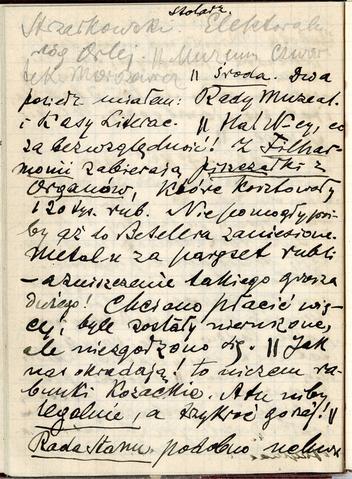 stolarz.
Strzałkowski. Elektoral-
róg Orlej. || Muzeum czwar
tek
|| Środa. Dwa
posiedz. miałem: Rady Muzeal.
i Kasy Literac. || Hał Niey, co
za bezwzględność! Z Filhar-
monii zabierają piszczałki z
Organów, które kosztowały
120 tys. rub. Nie pomogły proś-
by aż do Beselera zaniesione.
Metalu za paręset rubli
– a zniszczenie takiego grosza
dużego! Chciano płacić wię-
cej, byle zostały nieruszone,
ale niezgodzono się. || Jak
nas okradają! to niczem ra-
bunki Kozackie. A tu niby
legalnie, a trzykroć gorzej! ||
Rada Stanu podobno